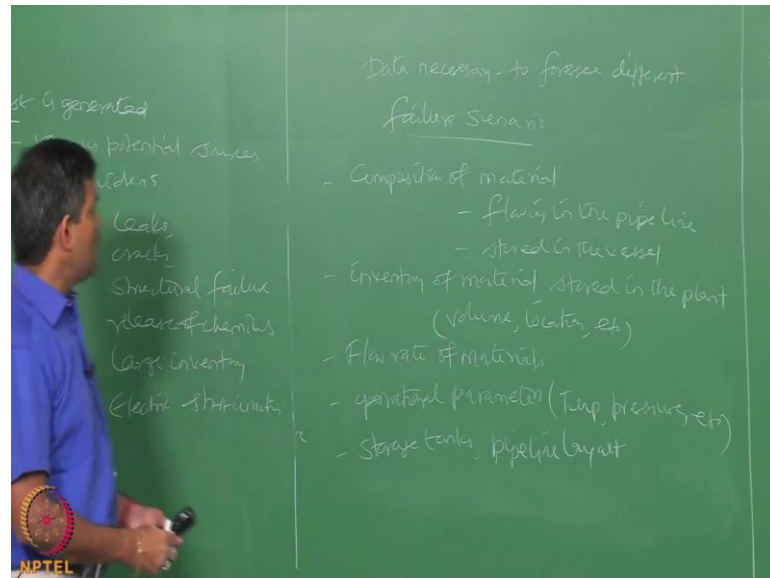 is generated
potential sources
Leaks,
cracks,
Structural failure
release of chemicals
Large inventory
Electric short circuits
Data necessary to foresee different
failure scenario
- Composition of material
- flowing in the pipeline
- stored in the vessel
- inventory of material stored in the plant
(volume, location, etc)
- Flow rate of materials
- operational parameters (Temp, pressure, etc)
- Storage tanks, pipeline layout
NPTEL